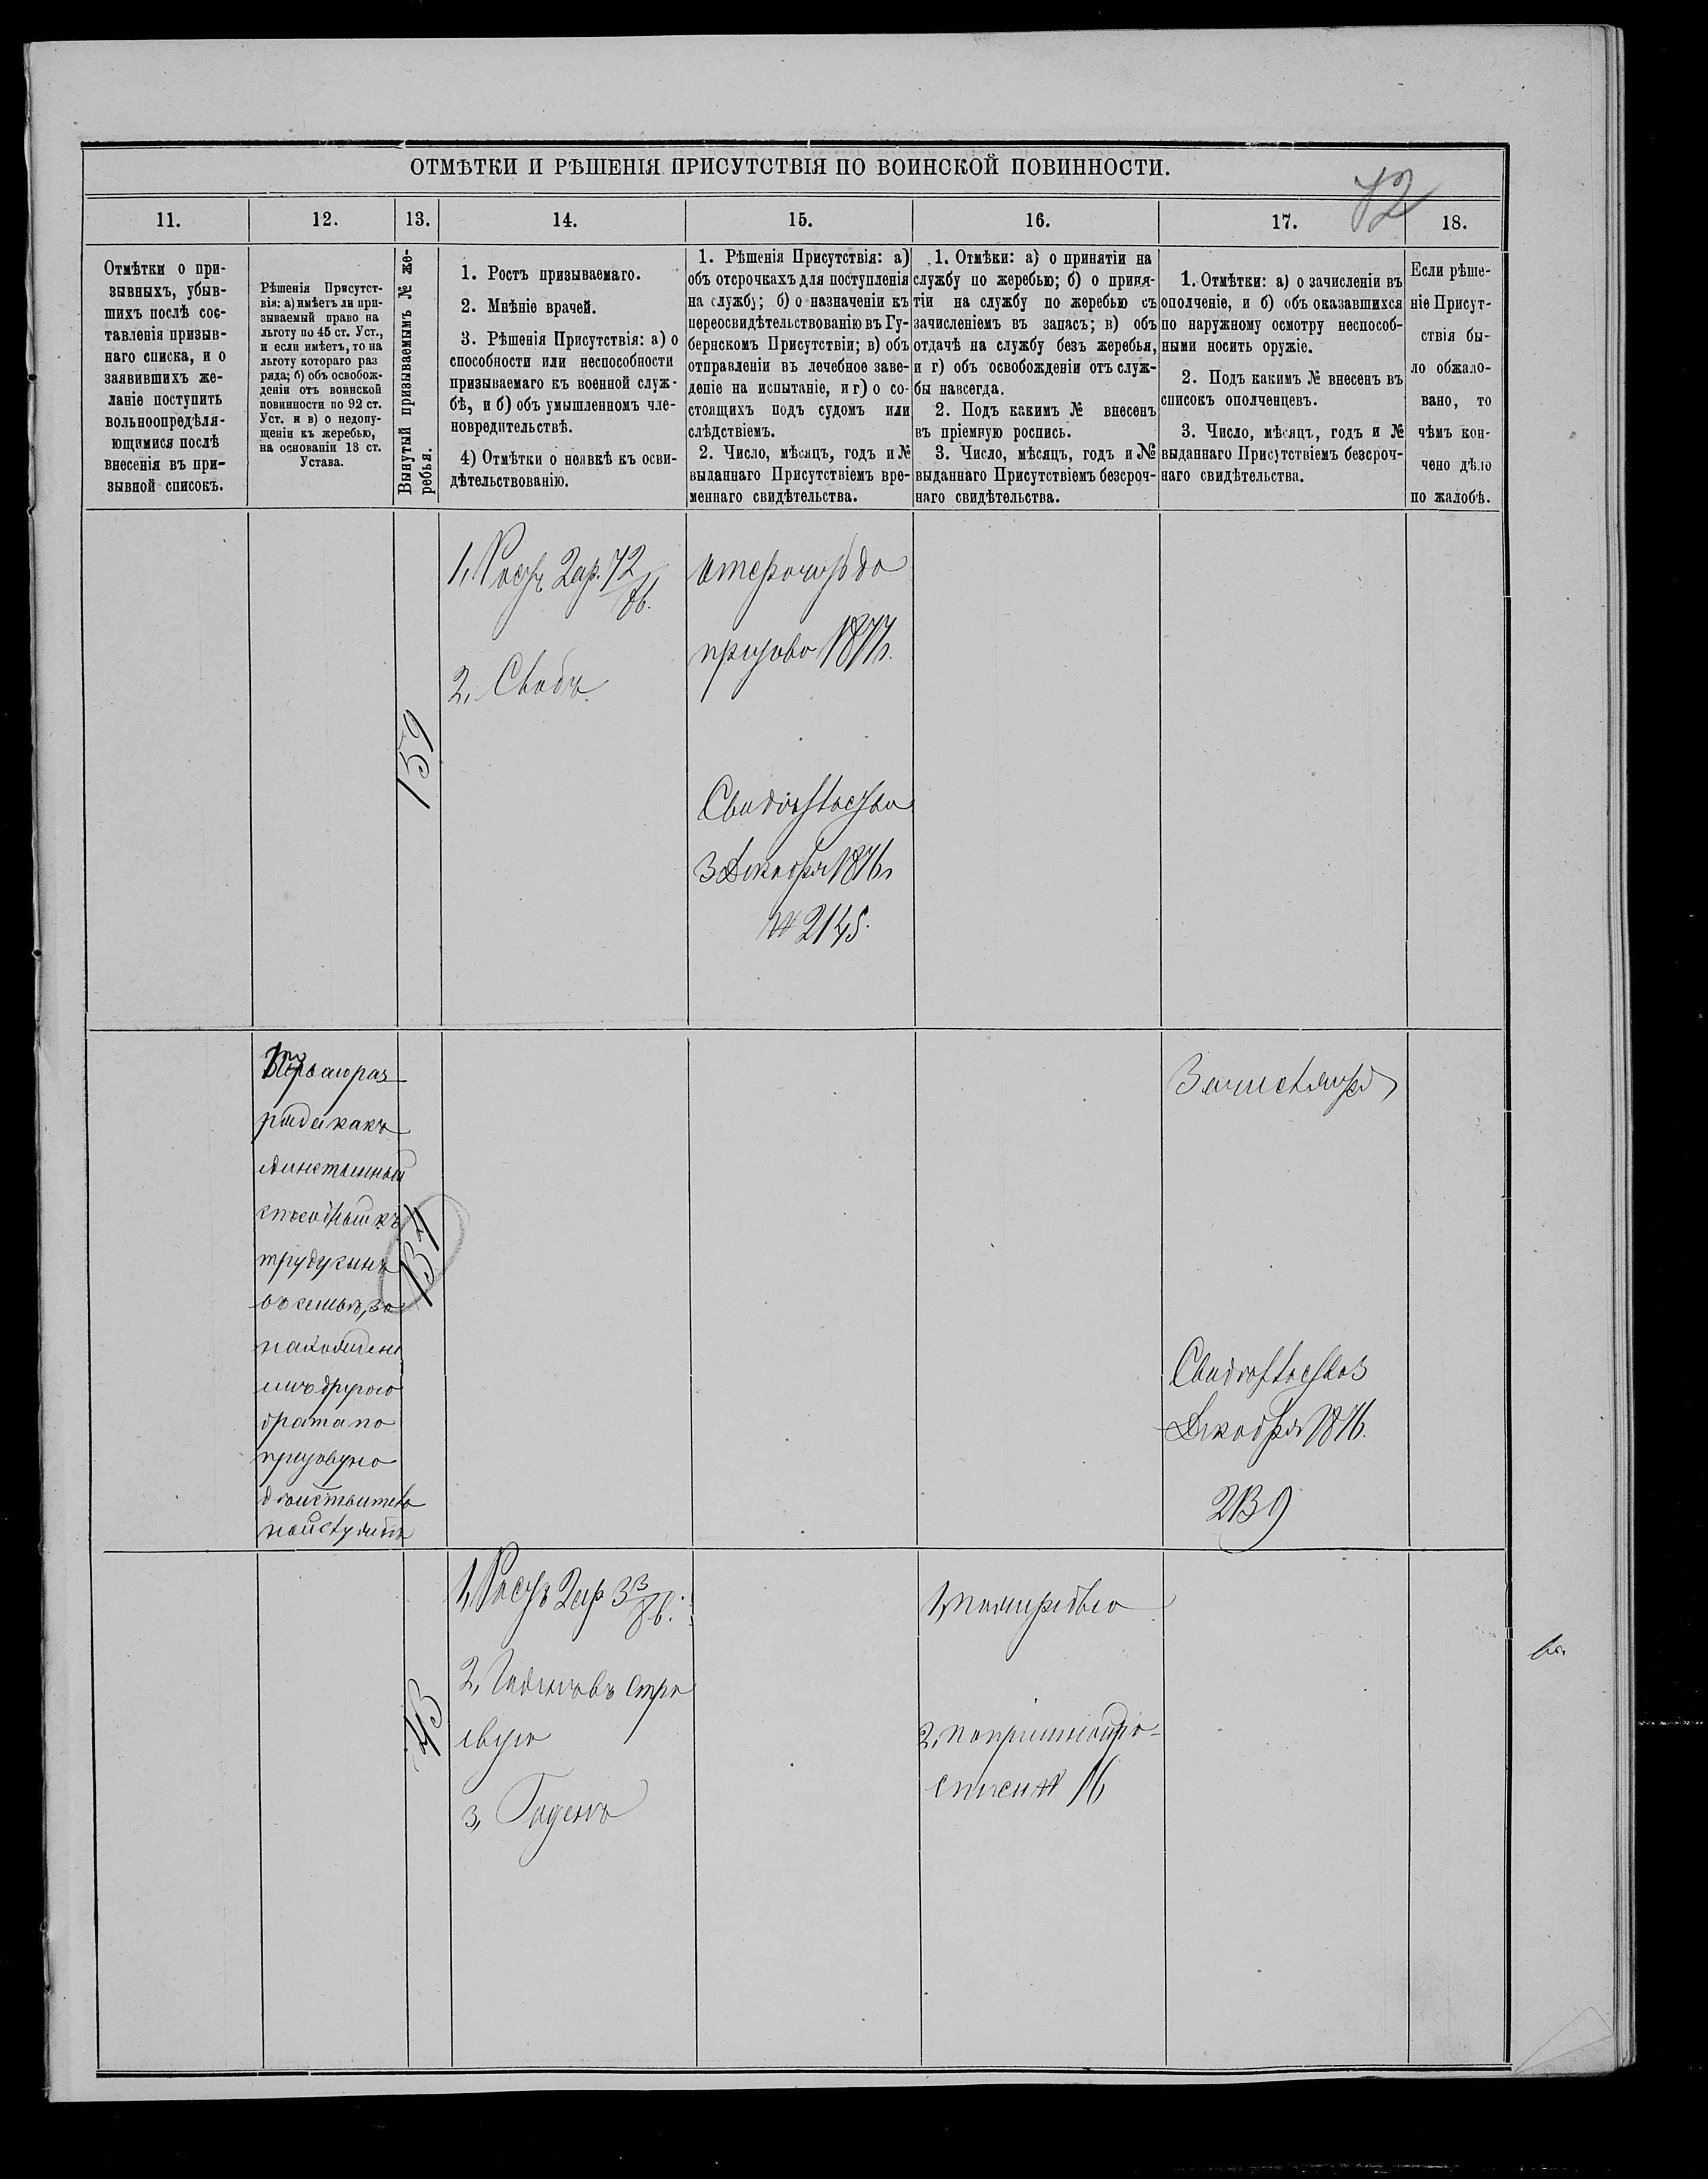 ОТМѢТКИ И РѢШЕНІЯ ПРИСУТСТВІЯ ПО ВОИНСКОЙ ПОВИННОСТИ.
72
11.
12.
13.
14.
15.
16.
17.
18.
Отмѣтки о при-
зывныхъ, убыв-
шихъ послѣ сос-
тавленія призыв-
наго списка, и о
заявившихъ же-
ланіе поступить
вольноопредѣля-
ющимися послѣ
внесенія въ при-
зывной списокъ.
Рѣшенія Присутст-
вія: а) имѣетъ ли при-
зываемый право на
льготу по 45 ст. Уст.,
и если имѣетъ, то на
льготу котораго раз
ряда; б) объ освобож-
деніи отъ воинской
повинности по 92 ст.
Уст. и в) о недопу-
щеніи къ жеребью,
на основаніи 13 ст.
Устава.
Вынутый призываемымъ № же-
ребья.
1. Ростъ призываемаго.
2. Мнѣніе врачей.
3. Рѣшенія Присутствія: а) о
способности или неспособности
призываемаго къ военной служ-
бѣ, и б) объ умышленномъ чле-
новредительствѣ.
4) Отмѣтки о неявкѣ къ осви-
дѣтельствованію.
1. Рѣшенія Присутствія: а)
объ отсрочкахъ для поступленія
на службу; б) о назначеніи къ
переосвидѣтельствованію въ Гу-
бернскомъ Присутствіи; в) объ
отправленіи въ лечебное заве-
деніе на испытаніе, и г) о со-
стоящихъ подъ судомъ или
слѣдствіемъ.
2. Число, мѣсяцъ, годъ и №
выданнаго Присутствіемъ вре-
меннаго свидѣтельства.
1. Отмѣки: а) о принятіи на
службу по жеребью; б) о приня-
тіи на службу по жеребью съ
зачисленіемъ въ запасъ; в) объ
отдачѣ на службу безъ жеребья,
и г) объ освобожденіи отъ служ-
бы навсегда.
2. Подъ какимъ № внесенъ
въ пріемную роспись.
3. Число, мѣсяцъ, годъ и №
выданнаго Присутствіемъ безсроч-
наго свидѣтельства.
1. Отмѣтки: а) о зачисленіи въ
ополченіе, и б) объ оказавшихся
по наружному осмотру неспособ-
ными носить оружіе.
2. Подъ какимъ № внесенъ въ
списокъ ополченцевъ.
3. Число, мѣсяцъ, годъ и №
выданнаго Присутствіемъ безсроч-
наго свидѣтельства.
Если рѣше-
ніе Присут-
ствія бы-
ло обжало-
вано, то
чѣмъ кон-
чено дѣло
по жалобѣ.
159
1, Ростъ 2 ар.
2, Слабъ
Отсрочить до
призыва 1877 г.
Свидѣтельство
3 Декабря 1876 г
№ 2145.
Перваго раз
ряда какъ
единственный
способный къ
труду сынъ
въ семьѣ, за
нахожденi
емъ другого
брата по
призыву на
дѣйствитель
ной службѣ
Свидѣтельство 3
Декабря 1876.
2139
1, Ростъ 2 ар 3
2, Годенъ въ стро
евую
3, Годенъ
2, по пріемной ро-
списи № 16